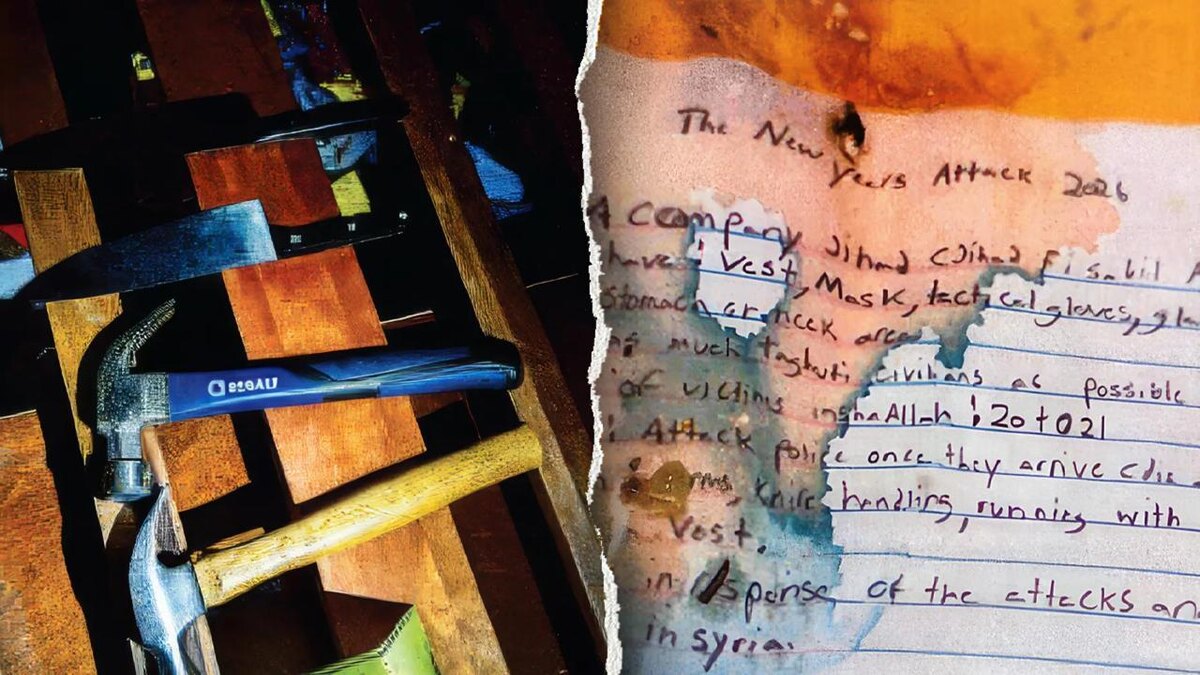 The New Years Attack 2026
A company Jihad (Jihad fi sabil
have : Vest, Mask, tactical gloves,
stomach or neck area
much taghuti civilians as possible
of victims inshaAllah : 20 to 21
Attack police once they arrive
knife handling, running with
Vest.
in response of the attacks an
in syria.